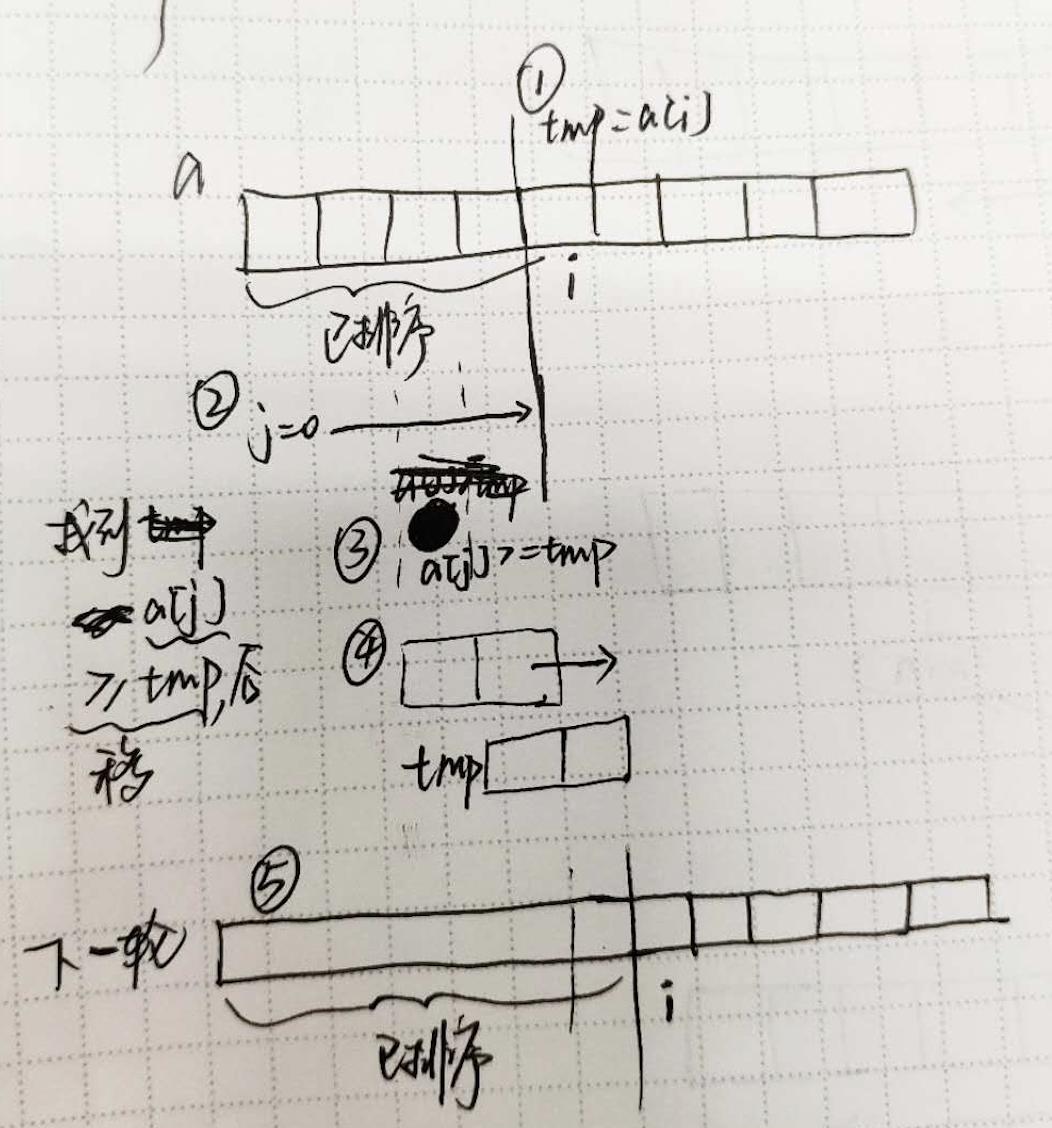 ①
tmp=a[i]
a
i
已排序
② j=0
找到
③ a[j]>=tmp
a[j]
④
≥tmp,后
移
tmp
⑤
下一轮
i
已排序